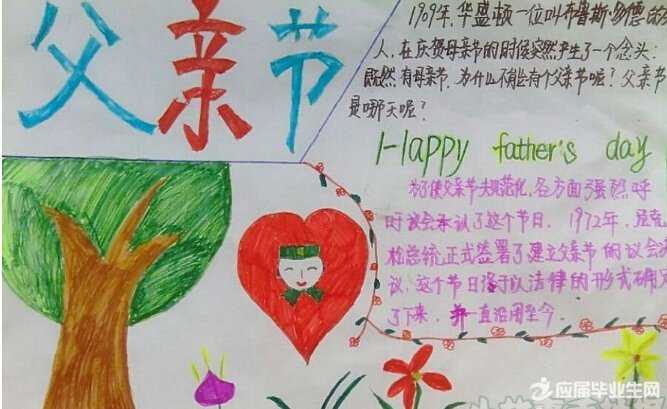 父亲节
1909年,华盛顿一位叫布鲁斯·多德的
人,在庆贺母亲节的时候突然产生了一个念头:
既然有母亲节,为什么不能有个父亲节呢?父亲节
是哪天呢?
Happy father's day
为了使父亲节规范化,各方面强烈呼
吁议会承认了这个节日。1972年,尼克
松总统正式签署了建立父亲节的议会决
议,这个节日终于以法律的形式确定
了下来,并一直沿用至今。
应届毕业生网